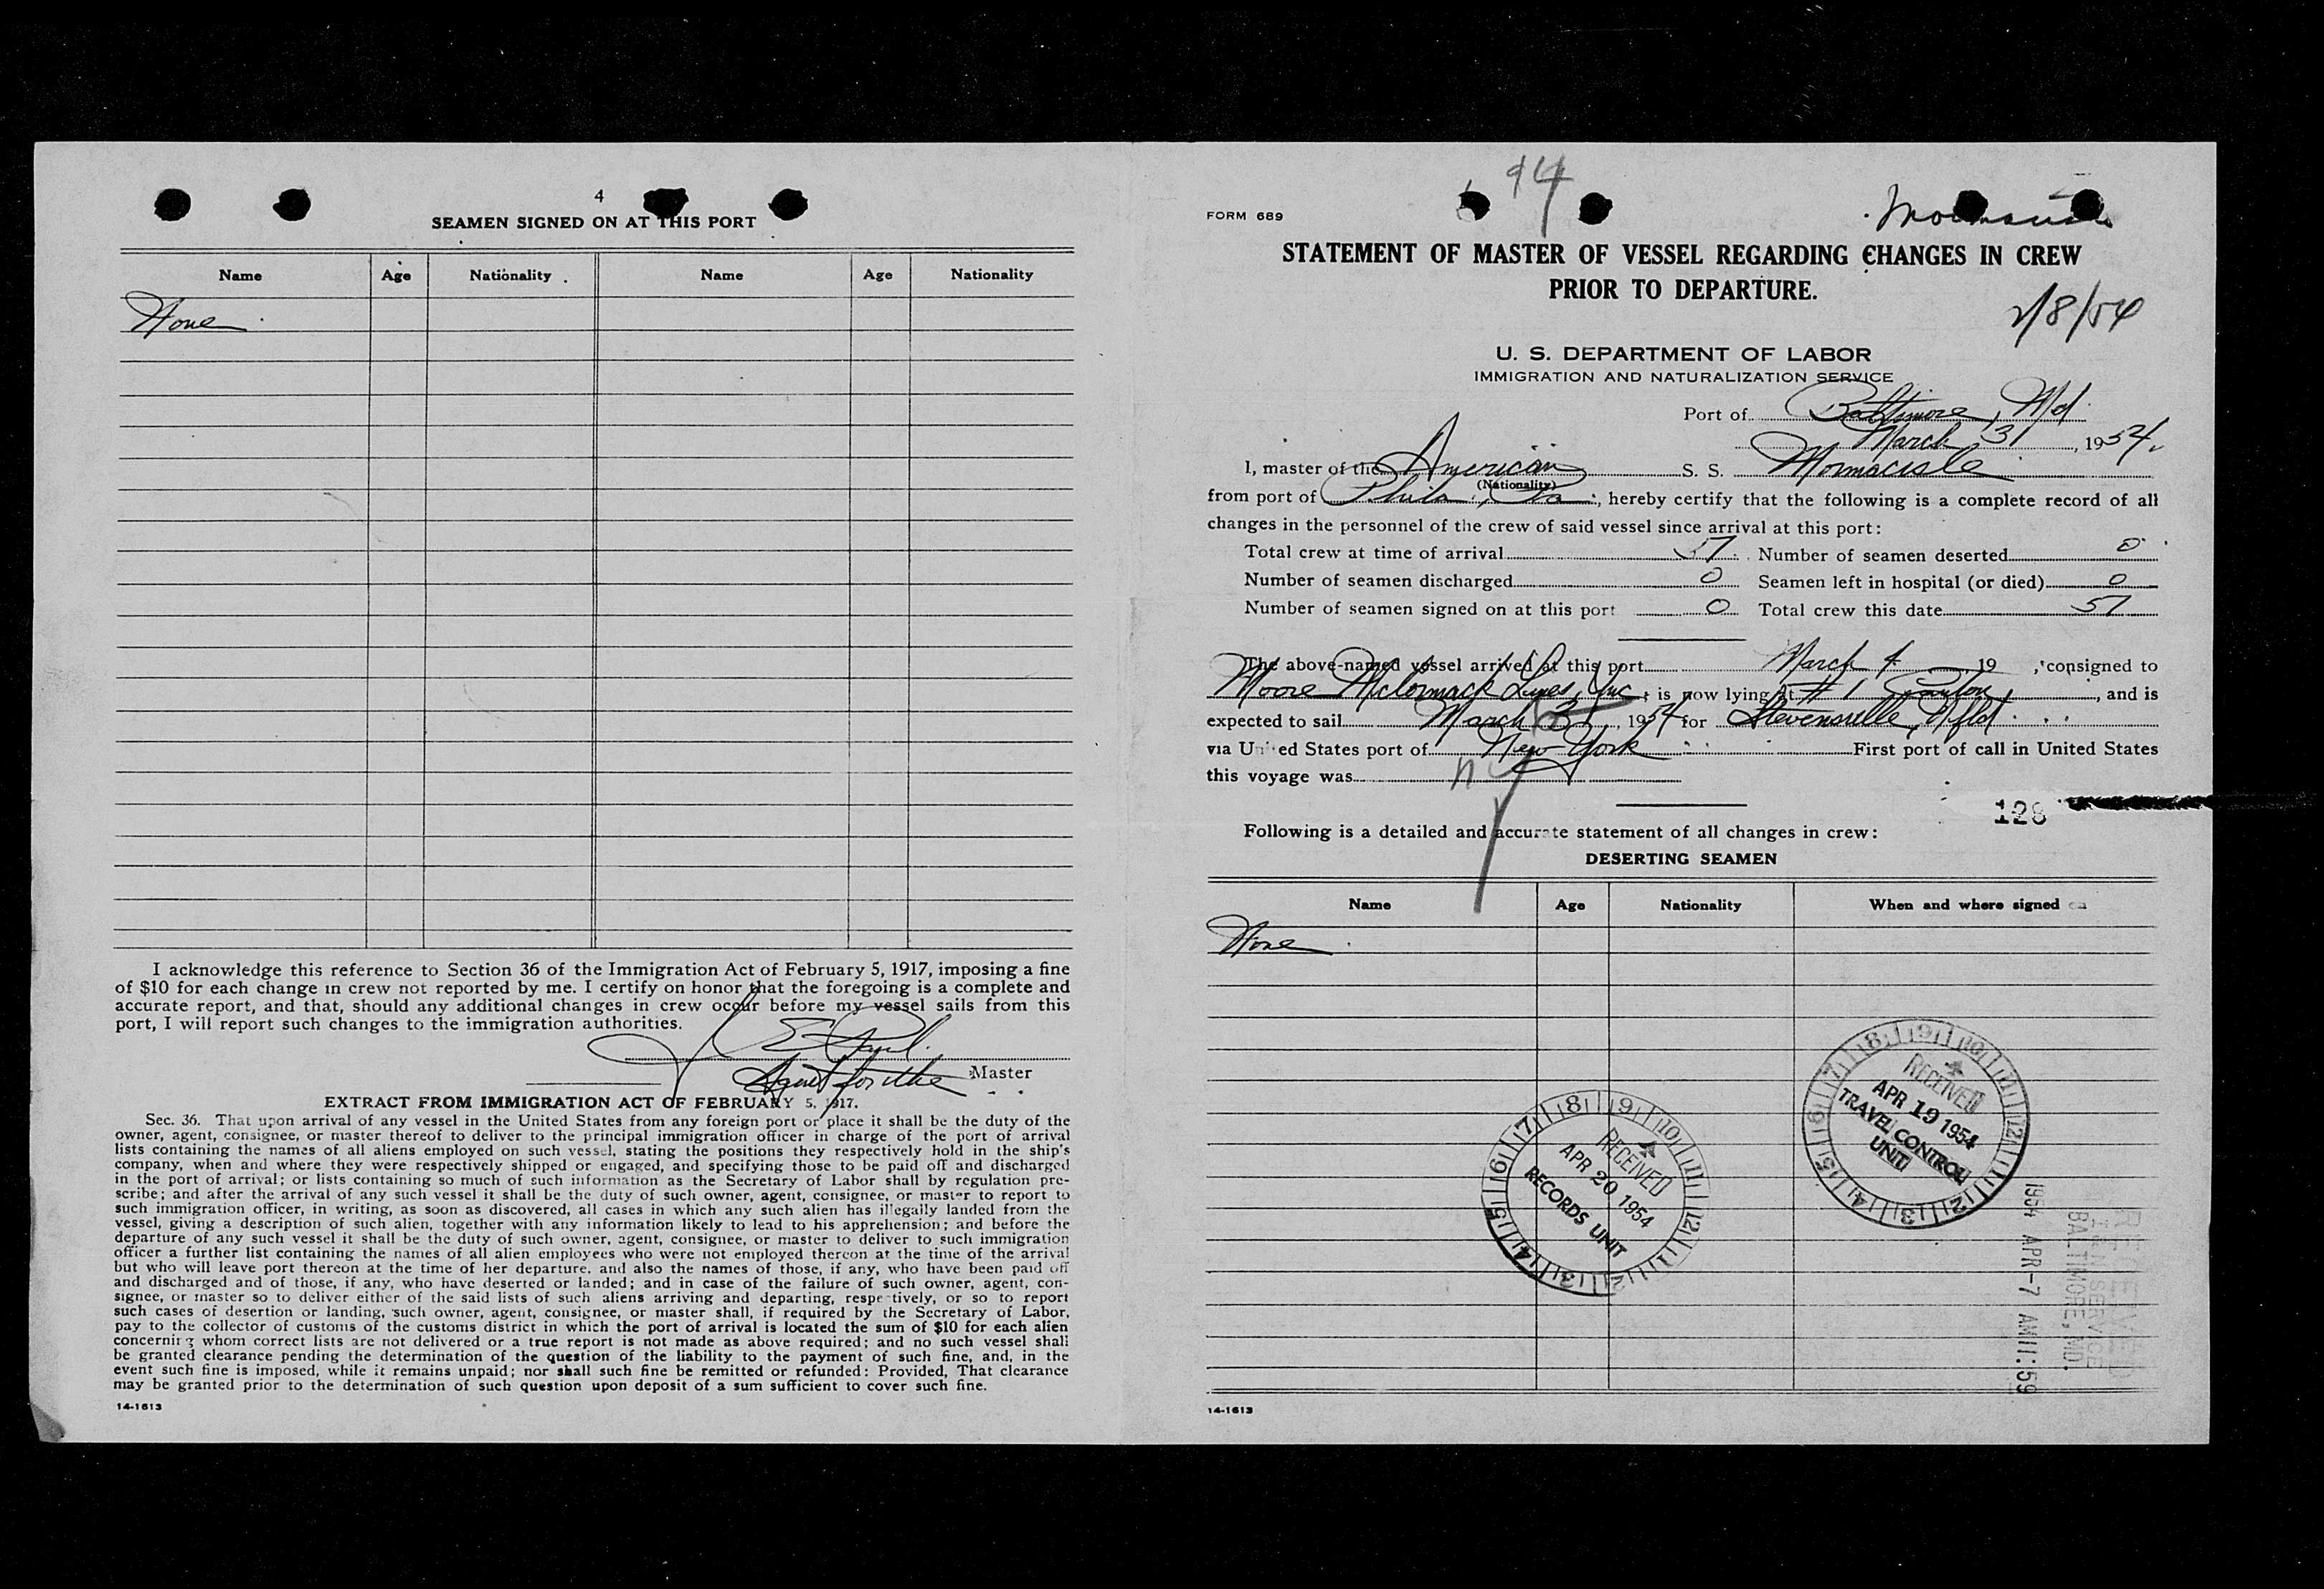 4
SEAMEN SIGNED ON AT THIS PORT
Name Age Nationality Name Age Nationality
None
I acknowledge this reference to Section 36 of the Immigration Act of February 5, 1917, imposing a fine
of $10 for each change in crew not reported by me. I certify on honor that the foregoing is a complete and
accurate report, and that, should any additional changes in crew occur before my vessel sails from this
port, I will report such changes to the immigration authorities.
Agent for the Master
EXTRACT FROM IMMIGRATION ACT OF FEBRUARY 5, 1917.
Sec. 36. That upon arrival of any vessel in the United States from any foreign port or place it shall be the duty of the
owner, agent, consignee, or master thereof to deliver to the principal immigration officer in charge of the port of arrival
lists containing the names of all aliens employed on such vessel, stating the positions they respectively hold in the ship's
company, when and where they were respectively shipped or engaged, and specifying those to be paid off and discharged
in the port of arrival; or lists containing so much of such information as the Secretary of Labor shall by regulation pre-
scribe; and after the arrival of any such vessel it shall be the duty of such owner, agent, consignee, or master to report to
such immigration officer, in writing, as soon as discovered, all cases in which any such alien has illegally landed from the
vessel, giving a description of such alien, together with any information likely to lead to his apprehension; and before the
departure of any such vessel it shall be the duty of such owner, agent, consignee, or master to deliver to such immigration
officer a further list containing the names of all alien employees who were not employed thereon at the time of the arrival
but who will leave port thereon at the time of her departure, and also the names of those, if any, who have been paid off
and discharged and of those, if any, who have deserted or landed; and in case of the failure of such owner, agent, con-
signee, or master so to deliver either of the said lists of such aliens arriving and departing, respectively, or so to report
such cases of desertion or landing, such owner, agent, consignee, or master shall, if required by the Secretary of Labor,
pay to the collector of customs of the customs district in which the port of arrival is located the sum of $10 for each alien
concerning whom correct lists are not delivered or a true report is not made as above required; and no such vessel shall
be granted clearance pending the determination of the question of the liability to the payment of such fine, and, in the
event such fine is imposed, while it remains unpaid; nor shall such fine be remitted or refunded: Provided, That clearance
may be granted prior to the determination of such question upon deposit of a sum sufficient to cover such fine.
14-1613
94
FORM 689
STATEMENT OF MASTER OF VESSEL REGARDING CHANGES IN CREW
PRIOR TO DEPARTURE.
U. S. DEPARTMENT OF LABOR
IMMIGRATION AND NATURALIZATION SERVICE
Port of Baltimore, Md.
March 31, 1954.
I, master of the American S. S. Mormacisle
(Nationality)
from port of Phila., Pa., hereby certify that the following is a complete record of all
changes in the personnel of the crew of said vessel since arrival at this port:
Total crew at time of arrival 57 Number of seamen deserted 0
Number of seamen discharged 0 Seamen left in hospital (or died) 0
Number of seamen signed on at this port 0 Total crew this date 57
The above-named vessel arrived at this port March 19 , consigned to
Moore McCormack Lines, Inc., is now lying at # 1 and is
expected to sail March 31, 1954 for Stevensville, Nfld.
via United States port of New York First port of call in United States
this voyage was ny
128
Following is a detailed and accurate statement of all changes in crew:
DESERTING SEAMEN
Name Age Nationality When and where signed on
None
RECEIVED
APR 19 1954
TRAVEL CONTROL
UNIT
RECEIVED
APR 20 1954
RECORDS UNIT
RECEIVED
I & N SERVICE
BALTIMORE, MD.
1954 APR-7 AM 11:59
14-1613